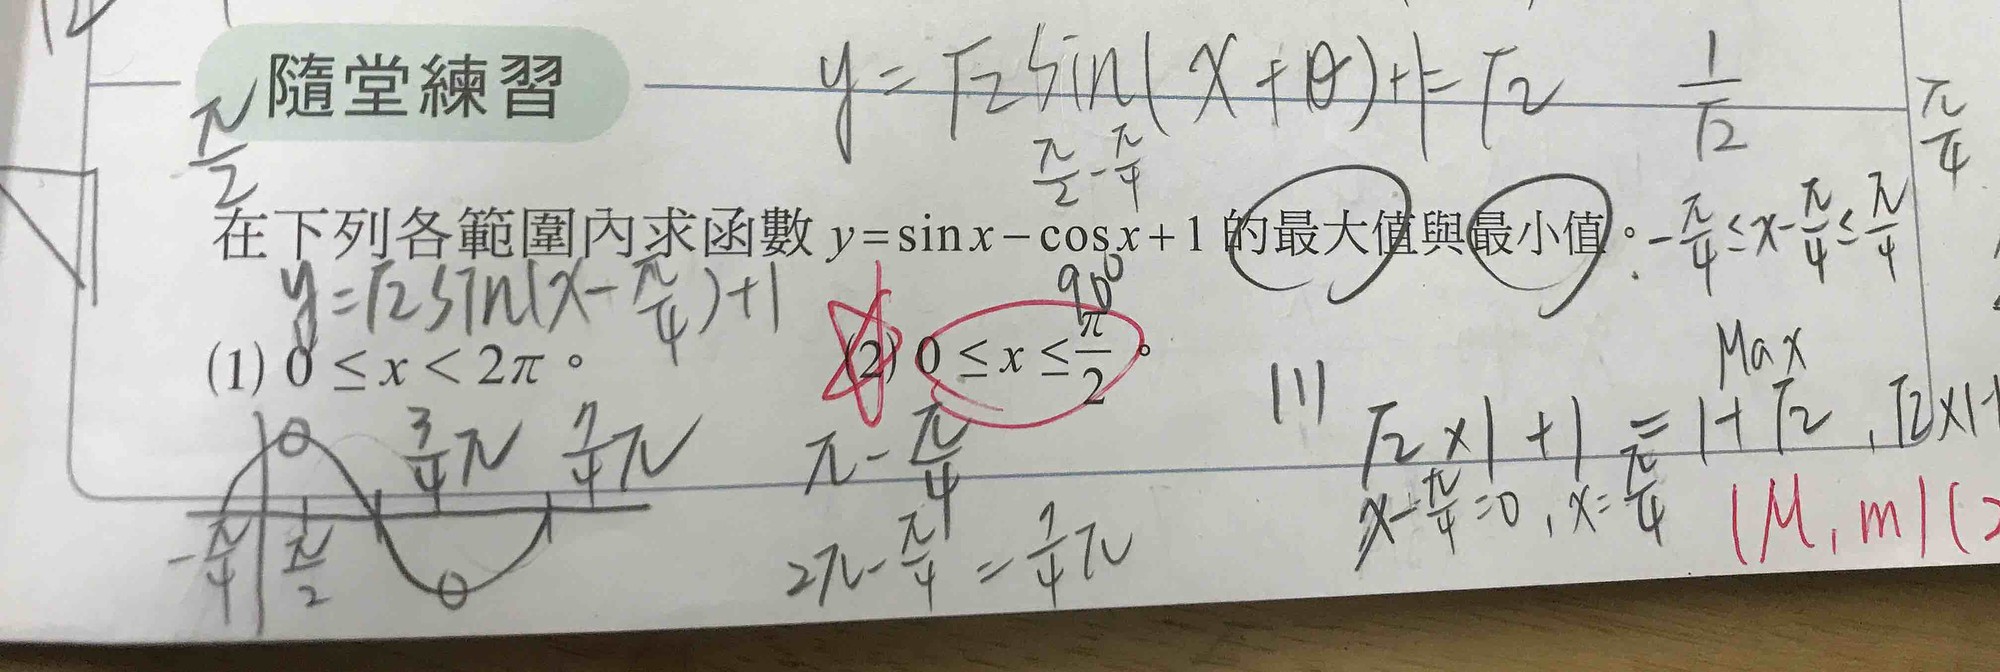 y = √2 sin(x + θ) + 1 = √2
1/√2
π/4
隨堂練習
π/2
π/2 - π/4
在下列各範圍內求函數 y = sin x − cos x + 1 的最大值與最小值。
-π/4 ≤ x - π/4 ≤ π/4
y = √2 sin(x - π/4) + 1
90°
(1) 0 ≤ x < 2π。
(2) 0 ≤ x ≤ π/2。
Max
(1) √2 × 1 + 1 = 1 + √2 , √2 × 1
3/4 π 7/4 π
π - π/4
x - π/4 = 0 , x = π/4
(M, m) (2
-π/4 π/2
2π - π/4 = 7/4 π